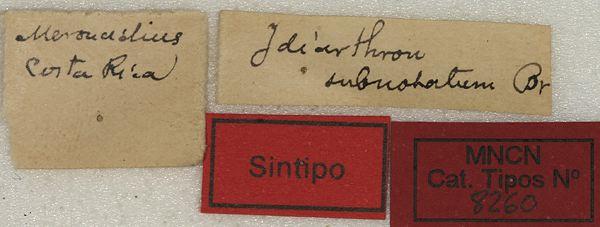 Costa Rica
Idiarthron
subnotatum Br
Sintipo
MNCN
Cat. Tipos Nº
8260